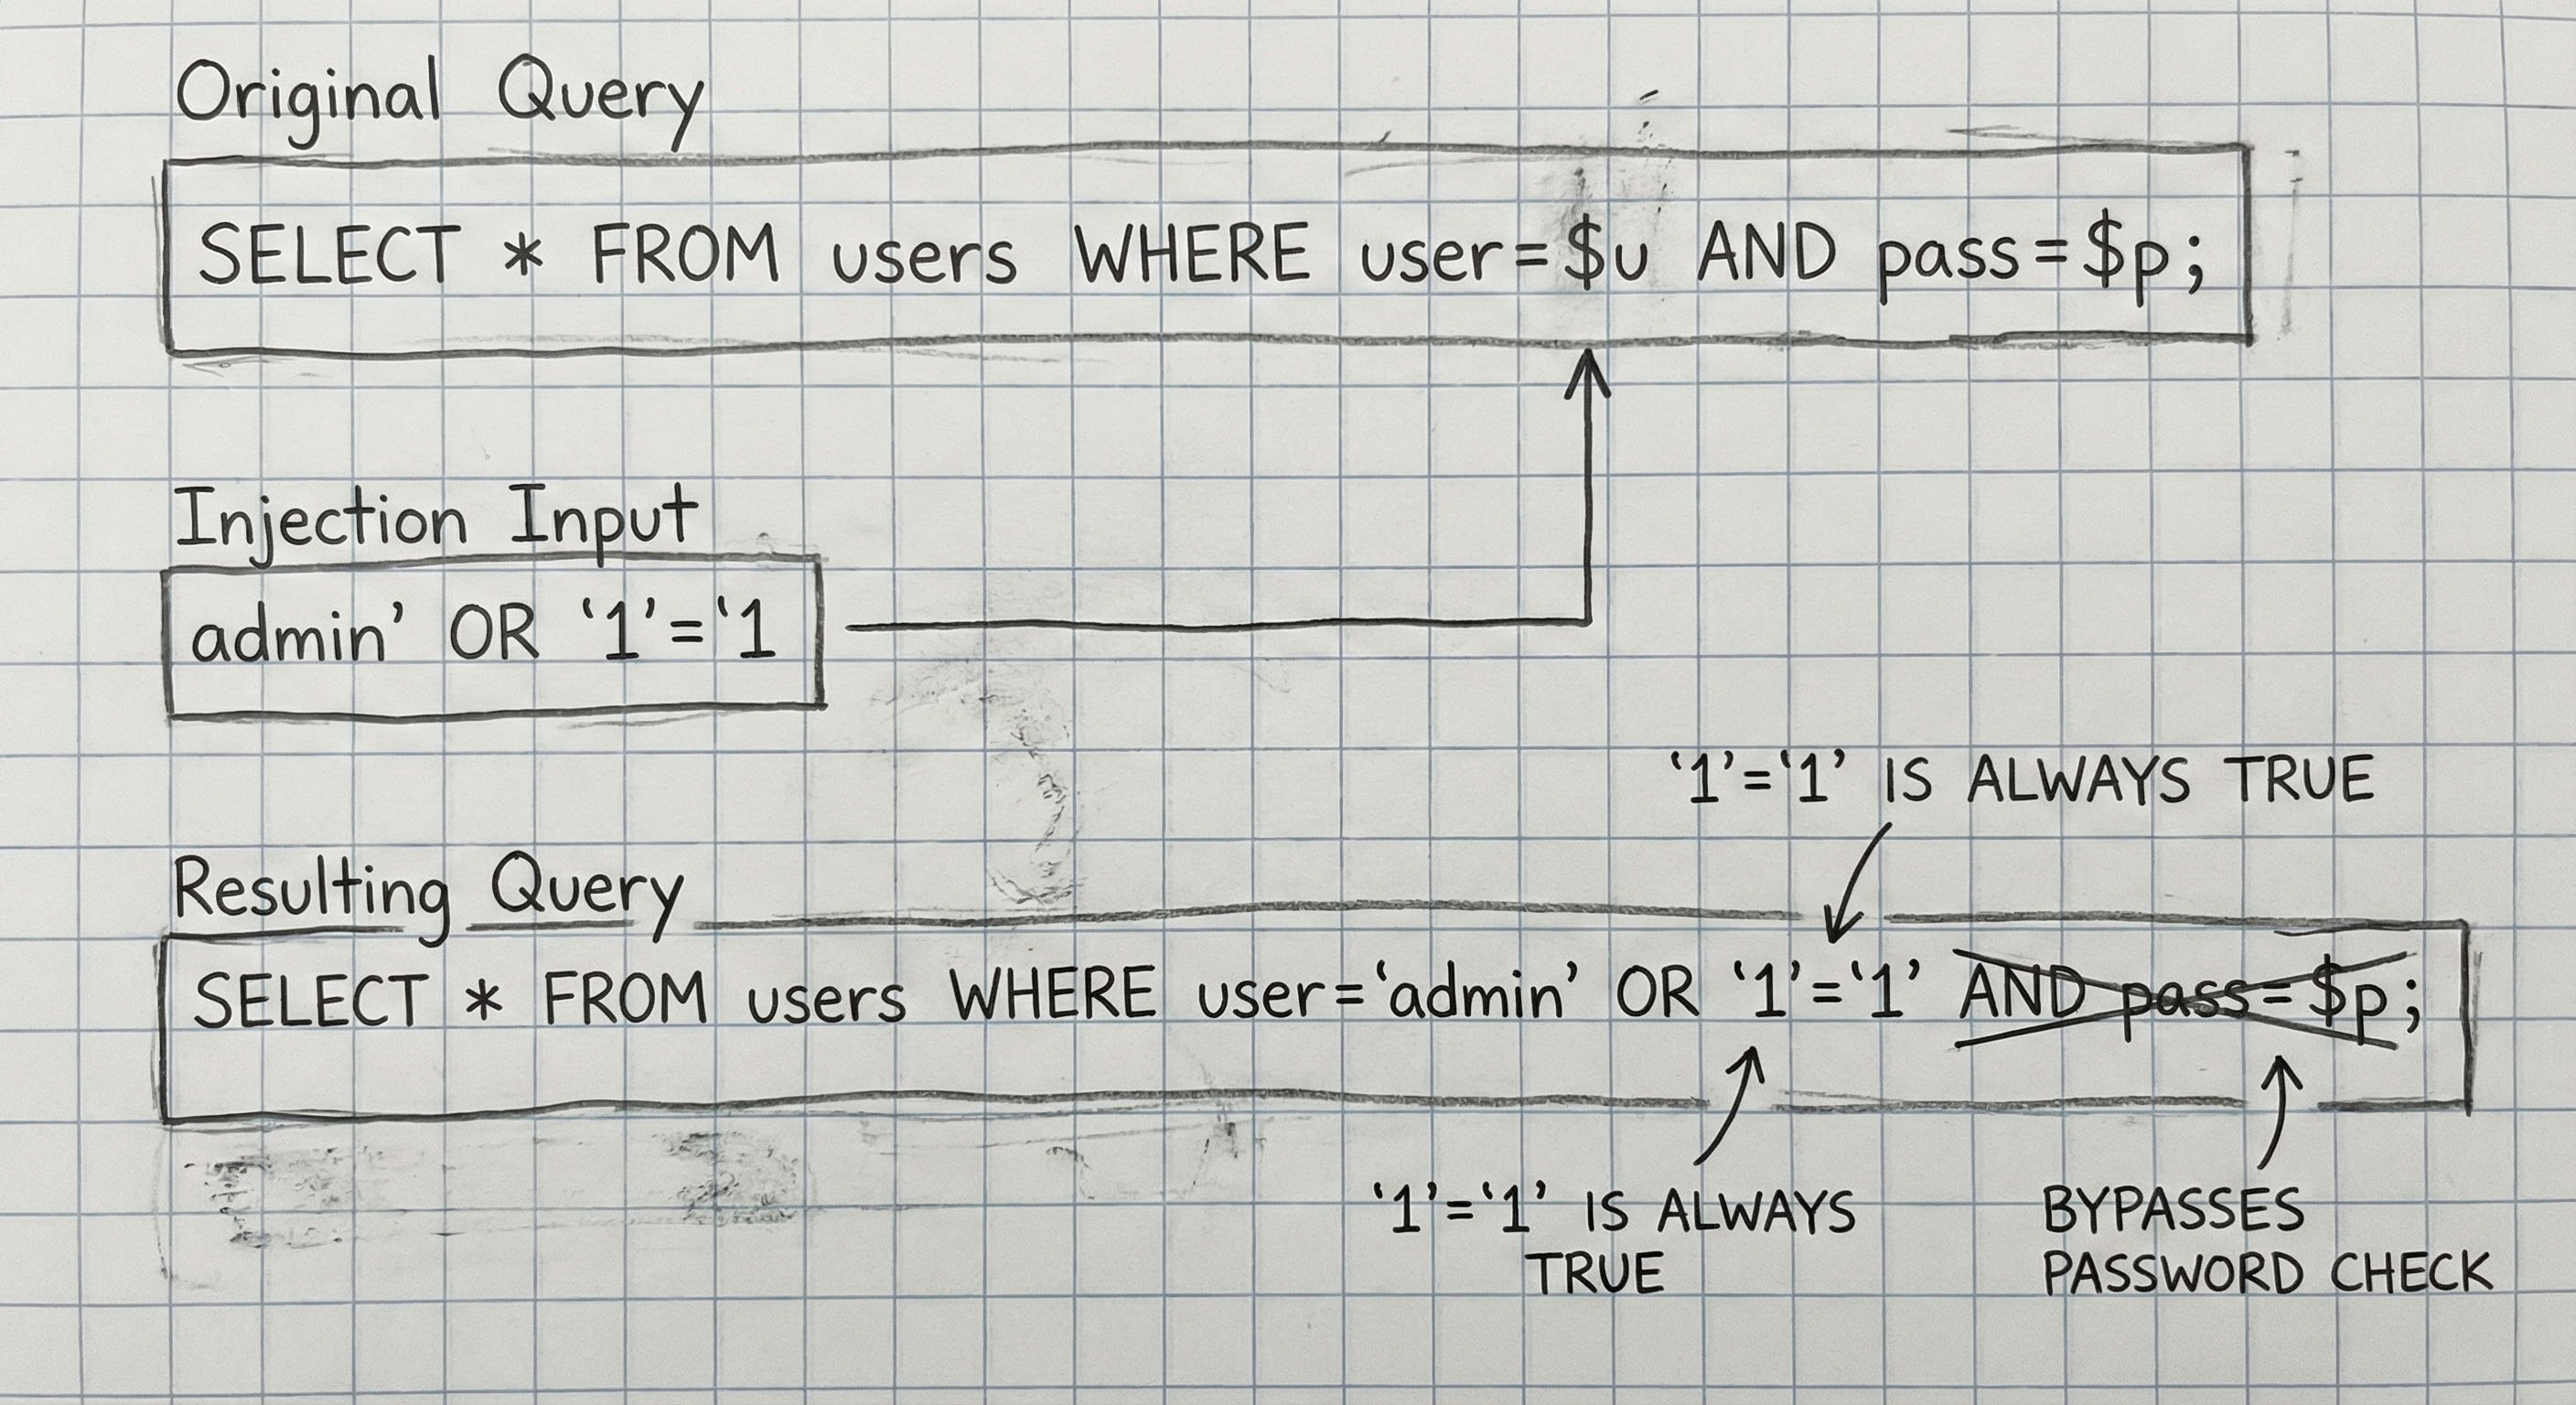 Original Query
SELECT * FROM users WHERE user=$u AND pass=$p;
Injection Input
admin’ OR ‘1’=‘1
‘1’=‘1’ IS ALWAYS TRUE
Resulting Query
SELECT * FROM users WHERE user=‘admin’ OR ‘1’=‘1’ AND pass=$p;
‘1’=‘1’ IS ALWAYS
TRUE
BYPASSES
PASSWORD CHECK